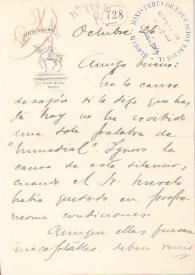 728
MINISTERIO DE EDUCACION
Octubre 26
Amigo bueno:
No le cause
desazón si le digo que has
ta hoy no he recibido
una sola palabra de
"Mundial" Ignoro la
causa de este silencio,
cuando el Sr. Merelo
había quedado en propo
nerme condiciones.
Aunque ellas fueran
inaceptables, deben venir